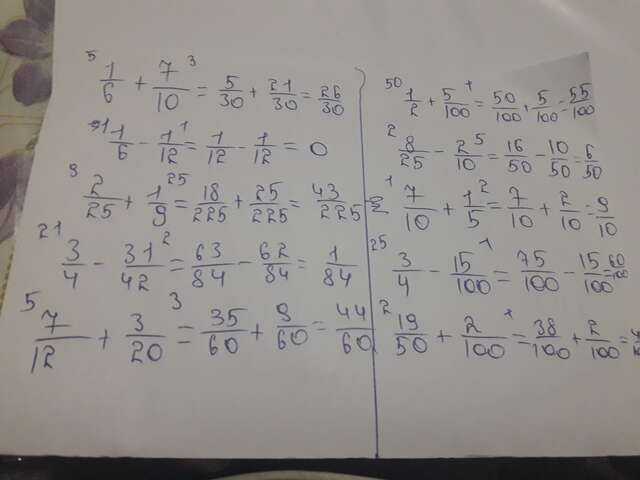 1/6 + 7/10 = 5/30 + 21/30 = 26/30
- 1/12 = 1/12 - 1/12 = 0
2/25 + 1/9 = 18/225 + 25/225 = 43/225
3/4 - 31/42 = 63/84 - 62/84 = 1/84
7/12 + 3/20 = 35/60 + 9/60 = 44/60
1/2 + 5/100 = 50/100 + 5/100 = 55/100
8/25 - 2/10 = 16/50 - 10/50 = 6/50
7/10 + 1/5 = 7/10 + 2/10 = 9/10
3/4 - 15/100 = 75/100 - 15/100 = 60/100
19/50 + 2/100 = 38/100 + 2/100 =